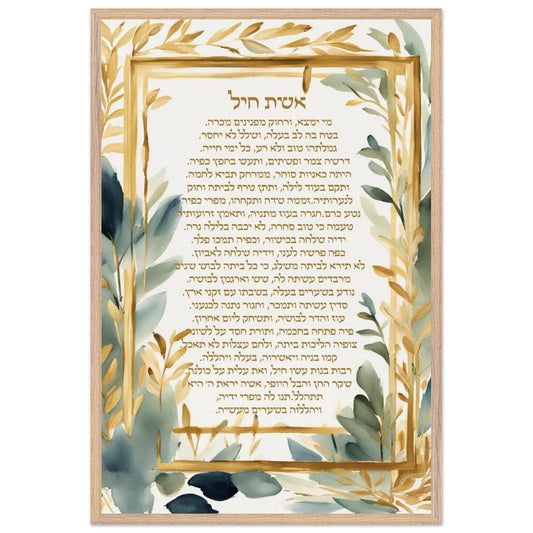 אשת חיל
מי ימצא, ורחוק מפנינים מכרה.
בטח בה לב בעלה, ושלל לא יחסר.
גמלתהו טוב ולא רע, כל ימי חייה.
דרשה צמר ופשתים, ותעש בחפץ כפיה.
היתה כאניות סוחר, ממרחק תביא לחמה.
ותקם בעוד לילה, ותתן טרף לביתה וחוק
לנערותיה.זממה שדה ותקחהו, מפרי כפיה
נטע כרם.חגרה בעוז מתניה, ותאמץ זרועותיה
טעמה כי טוב סחרה, לא יכבה בלילה נרה.
ידיה שלחה בכישור, וכפיה תמכו פלך.
כפה פרשיה לעני, וידיה שלחה לאביון.
לא תירא לביתה משלג, כי כל ביתה לבוש שנים
מרבדים עשיתה לה, שש וארגמן לבושה.
נודע בשערים בעלה, בשבתו עם זקני ארץ.
סדין עשיתה ותמכר, וחגור נתנה לכנעני.
עוז והדר לבושיה, ותשחק ליום אחרון.
פיה פתחה בחכמה, ותורת חסד על לשונה
צופיה הליכות ביתה, ולחם עצלות לא תאכל.
קמו בניה ויאשרוה, בעלה ויהללה.
רבות בנות עשו חיל, ואת עלית על כולנה.
שקר החן והבל היופי, אשה יראת ה׳ היא
תתהלל.תנו לה מפרי ידיה,
ויהללוה בשערים מעשיה.